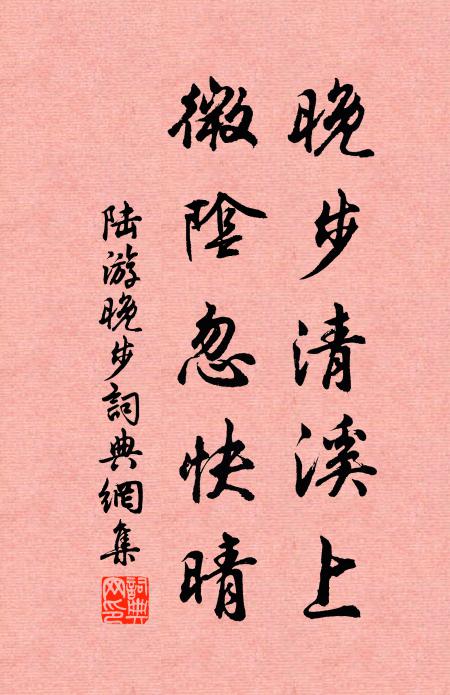 晚步清溪上
微陰忽快晴
陆游晚步詞典網集
詞典网印